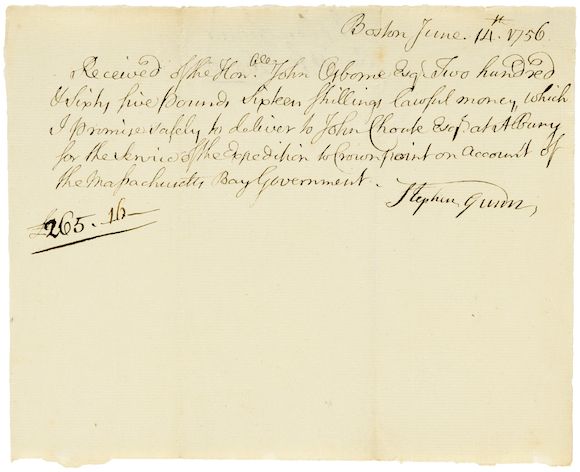 Boston June. 14th. 1756.
Received of the Hon.ble John Osborne Esqr Two hundred
& Sixty five Pounds Sixteen Shillings Lawful money, which
I Promise Safely to deliver to John Choate Esqr at Albany
for the Service of the Expedition to Crown Point on account of
the Massachusetts Bay Government.
Stephen
£265.-16-